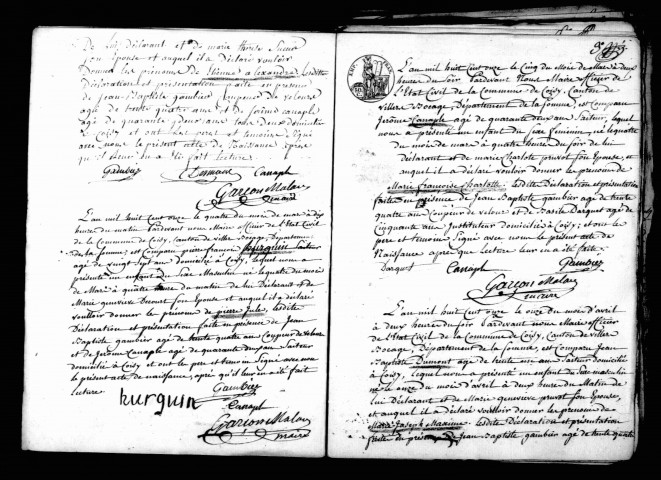 De lui déclarant et de marie thérèse Sueur
son Epouse et auquel il a déclaré vouloir
Donner les prenoms de alexandre lesdittes
Déclaration et présentation faite en presence
de Jean Baptiste gambier Coupeur de velours
agé de trente quatre ans et de Jerôme canaple
agé de quarante deux ans tous Deux domiciliés
à Coisy et ont les pere et temoins Signé
avec nous le present acte de Naissance après
qu'il leur en a été fait lecture
Gambiez Canaple
Garçon Malar
maire
L'an mil huit cent onze le quatre du mois de mars à dix
heures du matin Pardevant nous Maire officier de l'Etat Civil
de la Commune de Coisy, Canton de villers Bocage, Departement
de la Somme; est Comparu pierre francois hurguin
agé de vingt ans Domicilié à Coisy, lequel nous a
présenté un enfant du Sexe Masculin né le quatre du mois
de Mars à quatre heures du matin de lui Déclarant et de
Marie geneviéve Son Epouse et auquel il a déclaré
voulloir donner le prenoms de pierre Jules, lesditte
Déclaration et présentation faite en presence de Jean
Baptiste gambier agé de trente quatre ans Coupeur de velours
et de Jerôme Canaple agé de quarante deux ans
domiciliés à Coisy et ont les pere et temoins Signé avec nous
le présent acte de naissance, après qu'il leur en a été fait
lecture
Gambiez
hurguin
Canaple
Garçon Malar
maire
L'an mil huit cent onze le Cinq du Mois de Mars à deux
heures du Soir Pardevant Nous Maire officier de
l'Etat Civil de la Commune de Coisy, Canton de
villers Bocage, Département de la Somme, est Comparu
Jerôme Canaple agé de quarante deux ans lequel
nous a présenté un enfant du Sexe Feminin, né le quatre
du mois de mars à quatre heures du Soir de lui
déclarant et de marie Charlote pruvot son Epouse, et
auquel il a déclaré vouloir donner les prenoms de
Marie Françoise Charlotte, lesditte Déclaration et présentation
faite en présence de Jean Baptiste gambier agé de trente
quatre ans Coupeur de velours et de Basile Darquet agé de
Cinquante ans Instituteur domiciliés à Coisy; et ont les
pere et temoins Signé avec nous le présent acte de
Naissance après que lecture leur en a été faite
Darquet Canaple Gambiez
Garçon Malar
maire
L'an mil huit cent onze le onze du mois d'avril
à deux heures du Soir Pardevant nous Maire officier
de l'Etat Civil de la Commune de Coisy, Canton de villers
Bocage, Département de la Somme, est Comparu Jean
Baptiste Dumont agé de trente un ans domicilié
à Coisy, lequel nous a présenté un enfant du Sexe masculin
né le onze du mois d'avril à deux heures du Matin de
lui Déclarant et de Marie geneviéve pruvot Son Epouse,
et auquel il a déclaré voulloir donner les prenoms de
Marie Joseph Maxime lesditte Déclaration et présentation
faite en présence de Jean Baptiste gambier agé de trente quatre